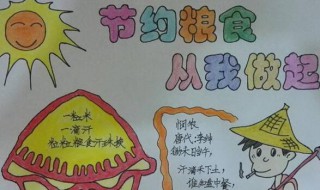 节约粮食
从我做起
一粒米
一滴汗
粒粒粮食汗珠换
悯农
唐代:李绅
锄禾日当午,
汗滴禾下土,
谁知盘中餐,